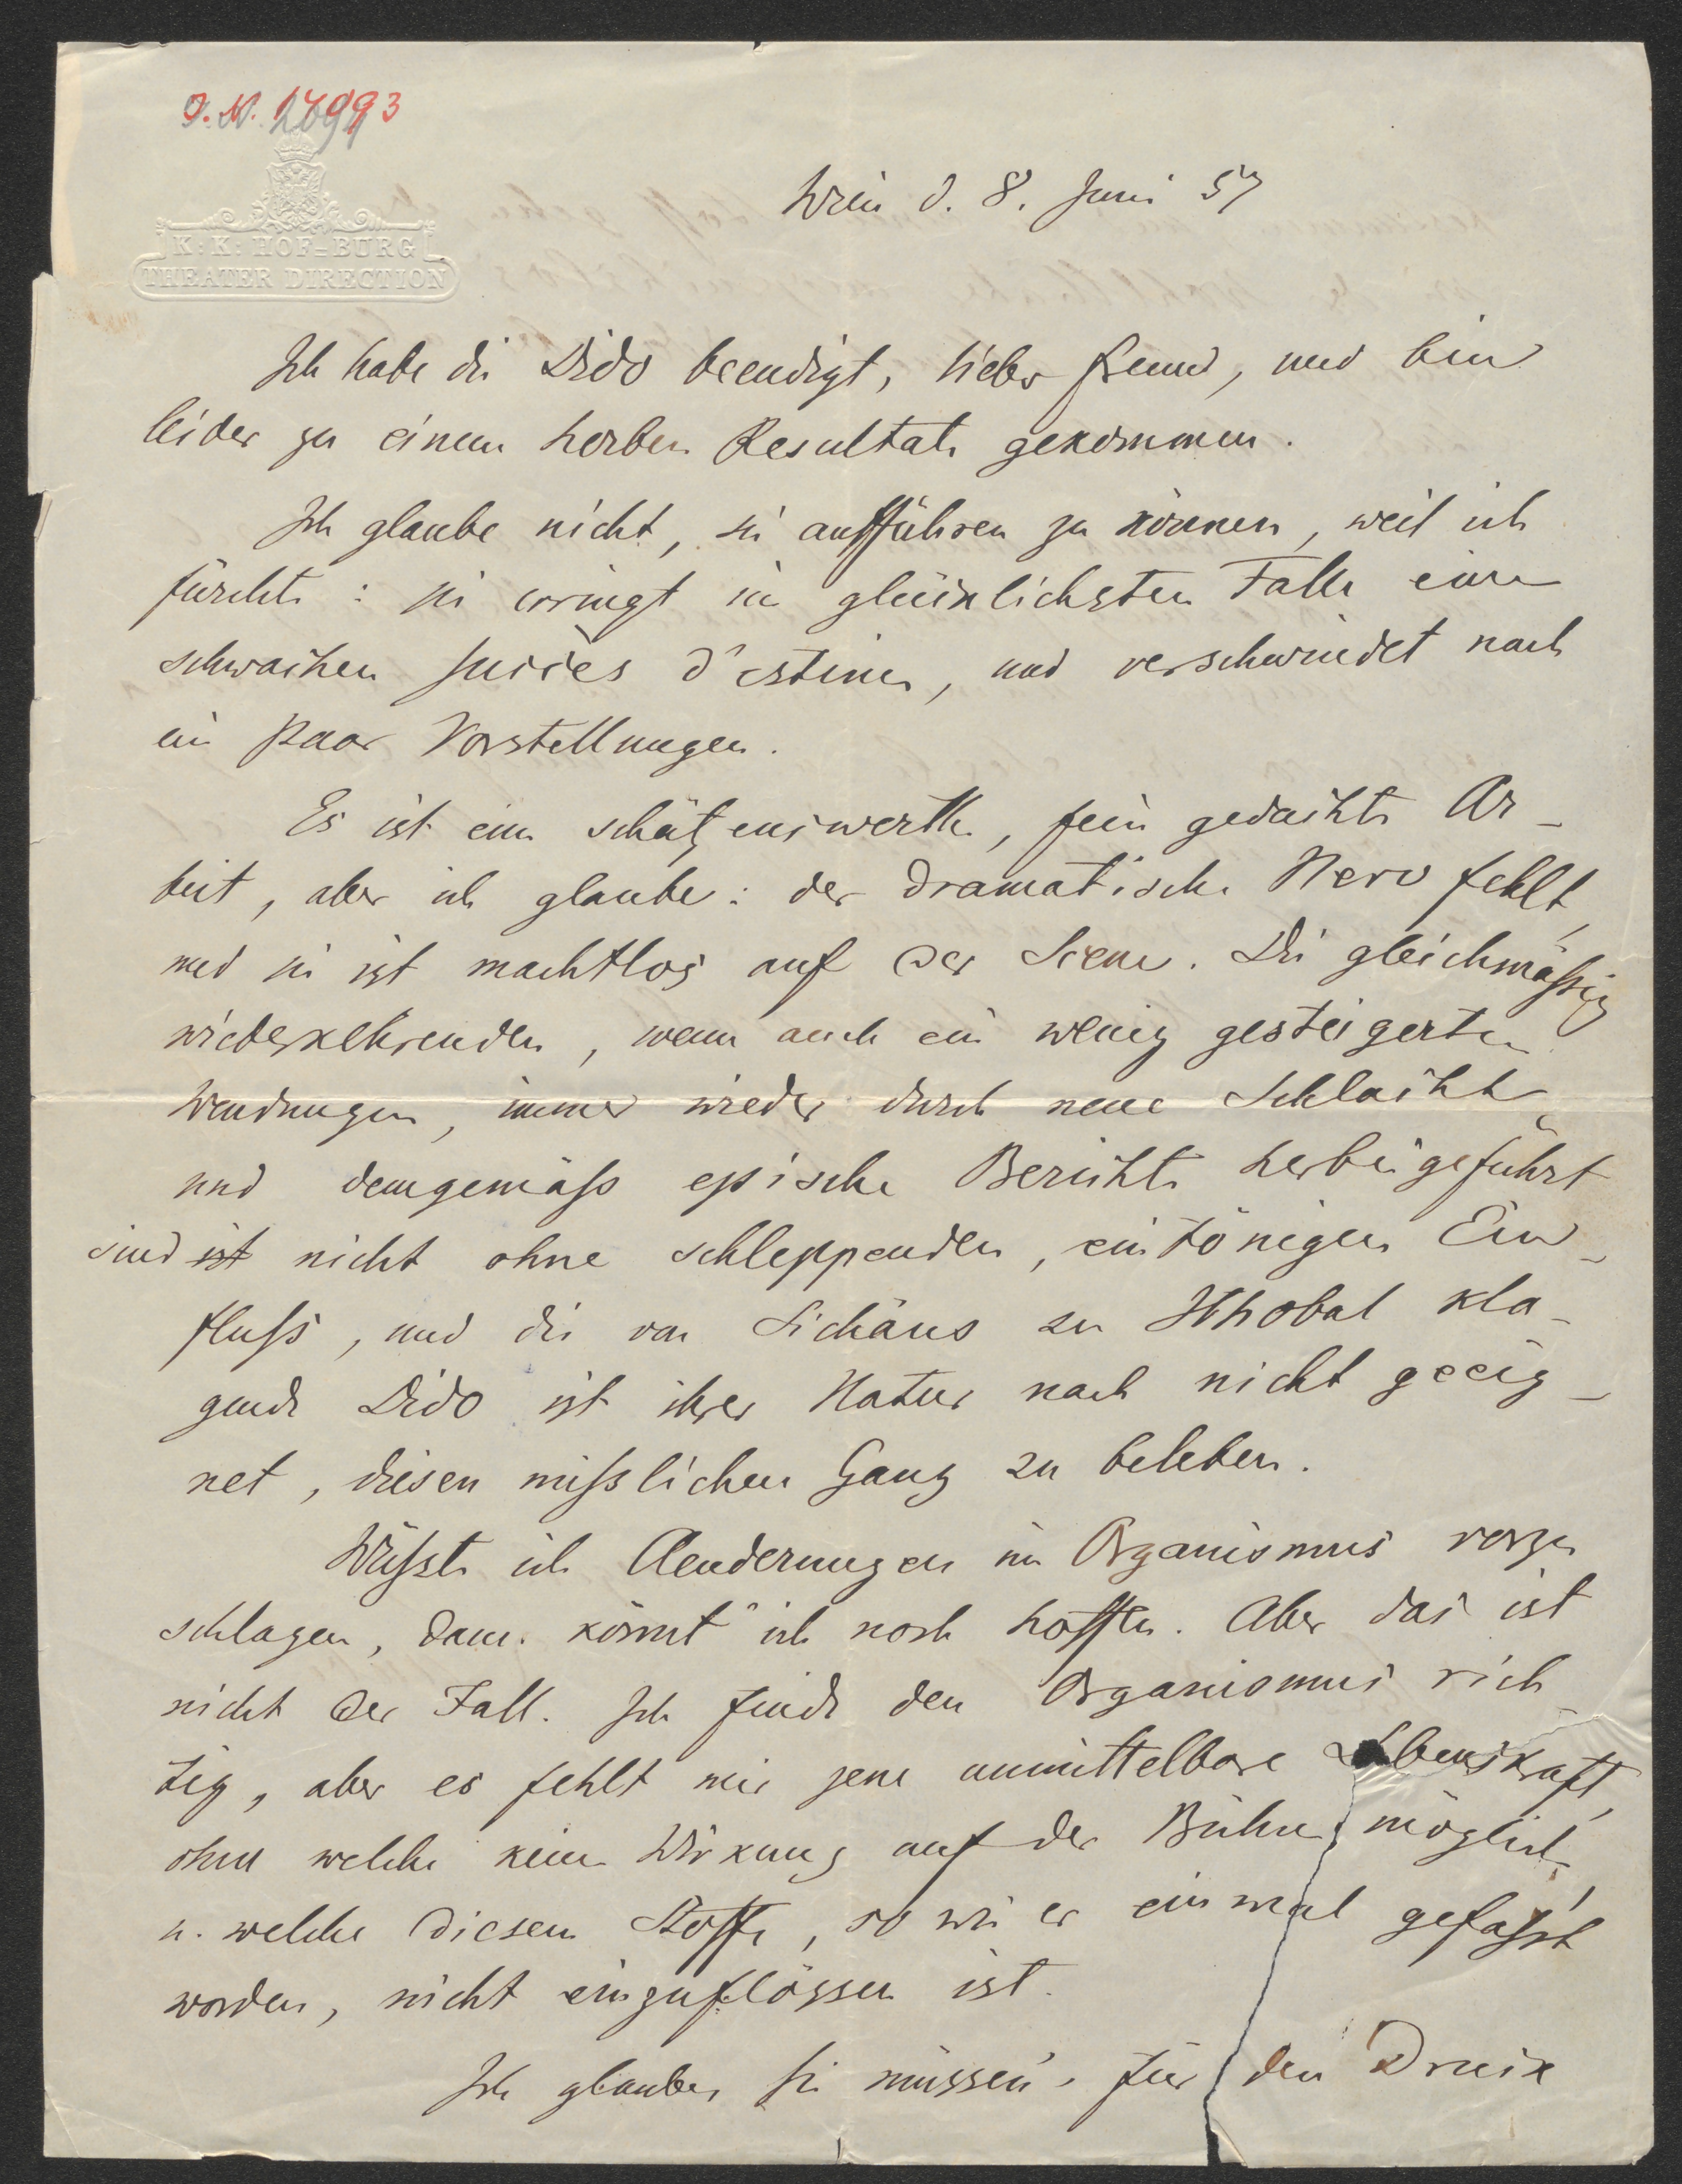 I. N. 17993
K: K: HOF-BURG
THEATER DIRECTION
Wien d. 8. Juni 57
Ich habe die Dido beendigt, lieber Freund, und bin
leider zu einem herben Resultate gekommen.
Ich glaube nicht, sie aufführen zu können, weil ich
fürchte: sie erringt im glücklichsten Falle einen
schwachen succès d'estime, und verschwindet nach
ein Paar Vorstellungen.
Es ist eine schätzenswerthe, fein gedachte Ar-
beit, aber ich glaube: der dramatische Nerv fehlt,
und sie ist machtlos auf der Scene. Die gleichmäßig
wiederkehrenden, wenn auch ein wenig gesteigerten
Wendungen, immer wieder durch neue Schlacht
und demgemäß epische Berichte herbeigeführt
sind ist nicht ohne schleppenden, eintönigen Ein-
fluß, und die von Sichäus zu Ithobal kla-
gende Dido ist ihrer Natur nach nicht geeig-
net, diesen mißlichen Gang zu beleben.
Wüßte ich Aenderungen im Organismus vorzu
schlagen, dann könnt' ich noch hoffen. Aber das ist
nicht der Fall. Ich finde den Organismus rich-
tig, aber es fehlt mir jene unmittelbare Lebenskraft,
ohne welche keine Wirkung auf der Bühne möglich,
u. welche diesem Stoffe, so wie er einmal gefaßt
worden, nicht einzuflössen ist.
Ich glaube, Sie müssen für den Druck